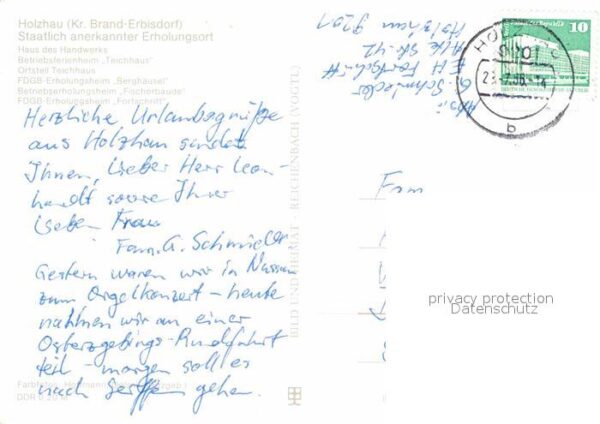 Holzhau (Kr. Brand-Erbisdorf)
Staatlich anerkannter Erholungsort
Haus des Handwerks
Betriebsferienheim „Teichhaus“
Ortsteil Teichhaus
FDGB-Erholungsheim „Berghäusel“
Betriebserholungsheim „Fischerbaude“
FDGB-Erholungsheim „Fortschritt“
Herzliche Urlaubsgrüße
aus Holzhau sendet
Ihnen, lieber Herr Leon-
hardt sowie Ihrer
lieben Frau
Fam. G. Schmieder
Gestern waren wir in Nassau
zum Orgelkonzert – heute
nahmen wir an einer
Osterzgebirgs-Rundfahrt
teil – morgen soll es
nach Seiffen gehen.
Farbfotos:
DDR
BILD UND HEIMAT · REICHENBACH (VOGTL)
Abs.:
G. Schmieder
EH Fortschritt
Alte Str. 42
Holzhau 9201
HOLZHAU
9201
b
10
Fam
privacy protection
Datenschutz